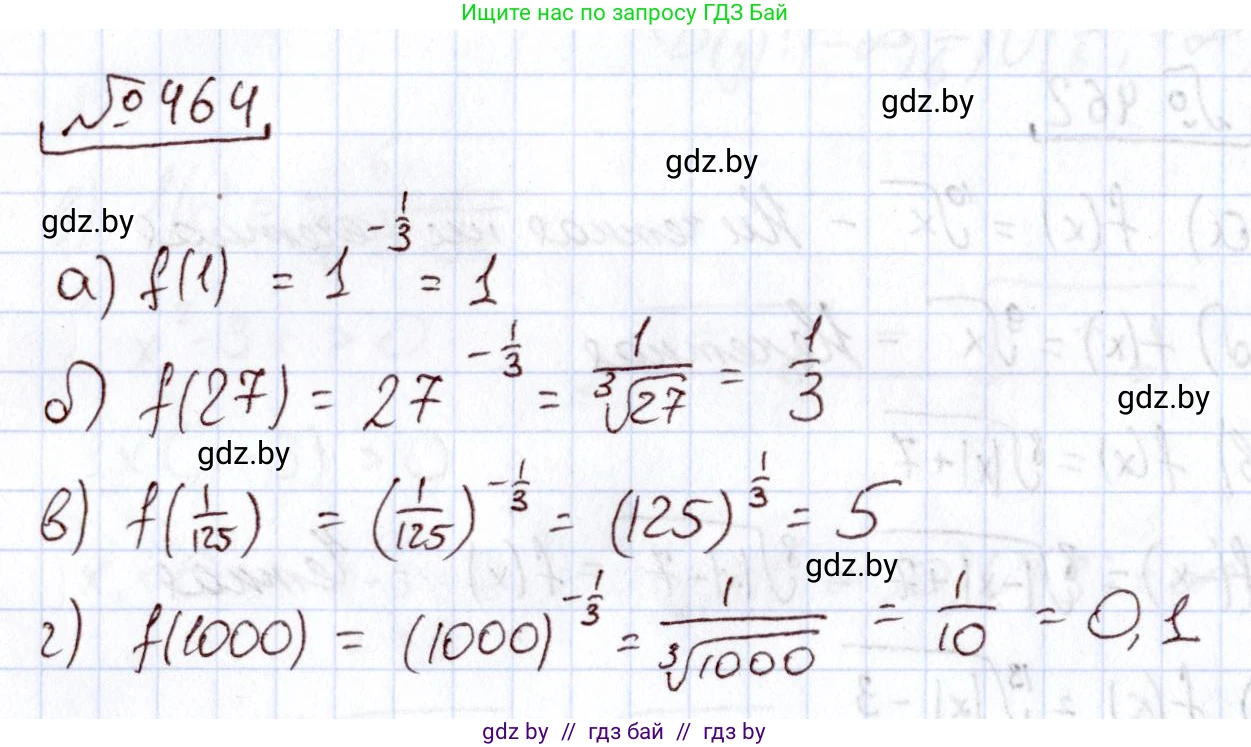 Ищите нас по запросу ГДЗ Бай
№ 464
gdz.by
gdz.by
gdz.by
а) f(1) = 1^{-1/3} = 1
б) f(27) = 27^{-1/3} = 1/∛27 = 1/3
gdz.by
gdz.by
в) f(1/125) = (1/125)^{-1/3} = (125)^{1/3} = 5
gdz.by
г) f(1000) = (1000)^{-1/3} = 1/∛1000 = 1/10 = 0,1
gdz.by // гдз бай // гдз by